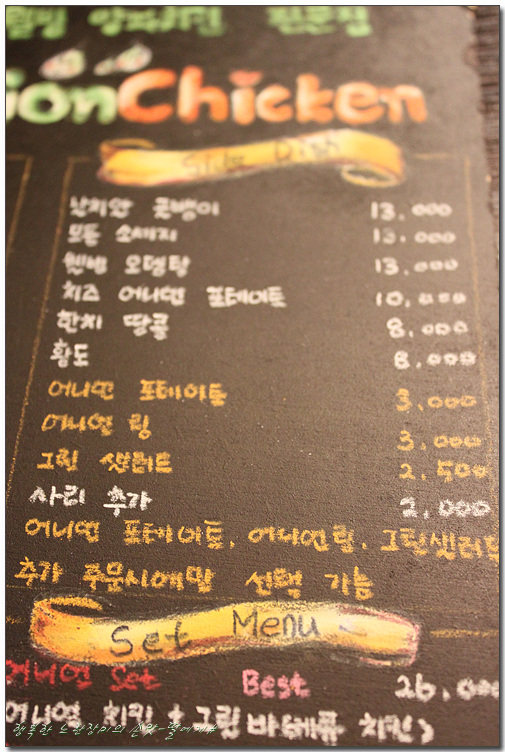 전문점
ionChicken
Side Dish
골뱅이 13,000
모든 소세지 13,000
오뎅탕 13,000
치즈 어니언 포테이토 10,000
한치 땅콩 8,000
황도 8,000
어니언 포테이토 3,000
어니언 링 3,000
그린 샐러드 2,500
사리 추가 2,000
어니언 포테이토, 어니언링, 그린샐러드
추가 주문시에만 선택 가능
Set Menu
어니언 Set Best 26,000
어니언 치킨 + 그릴 바베큐 치킨
행복한